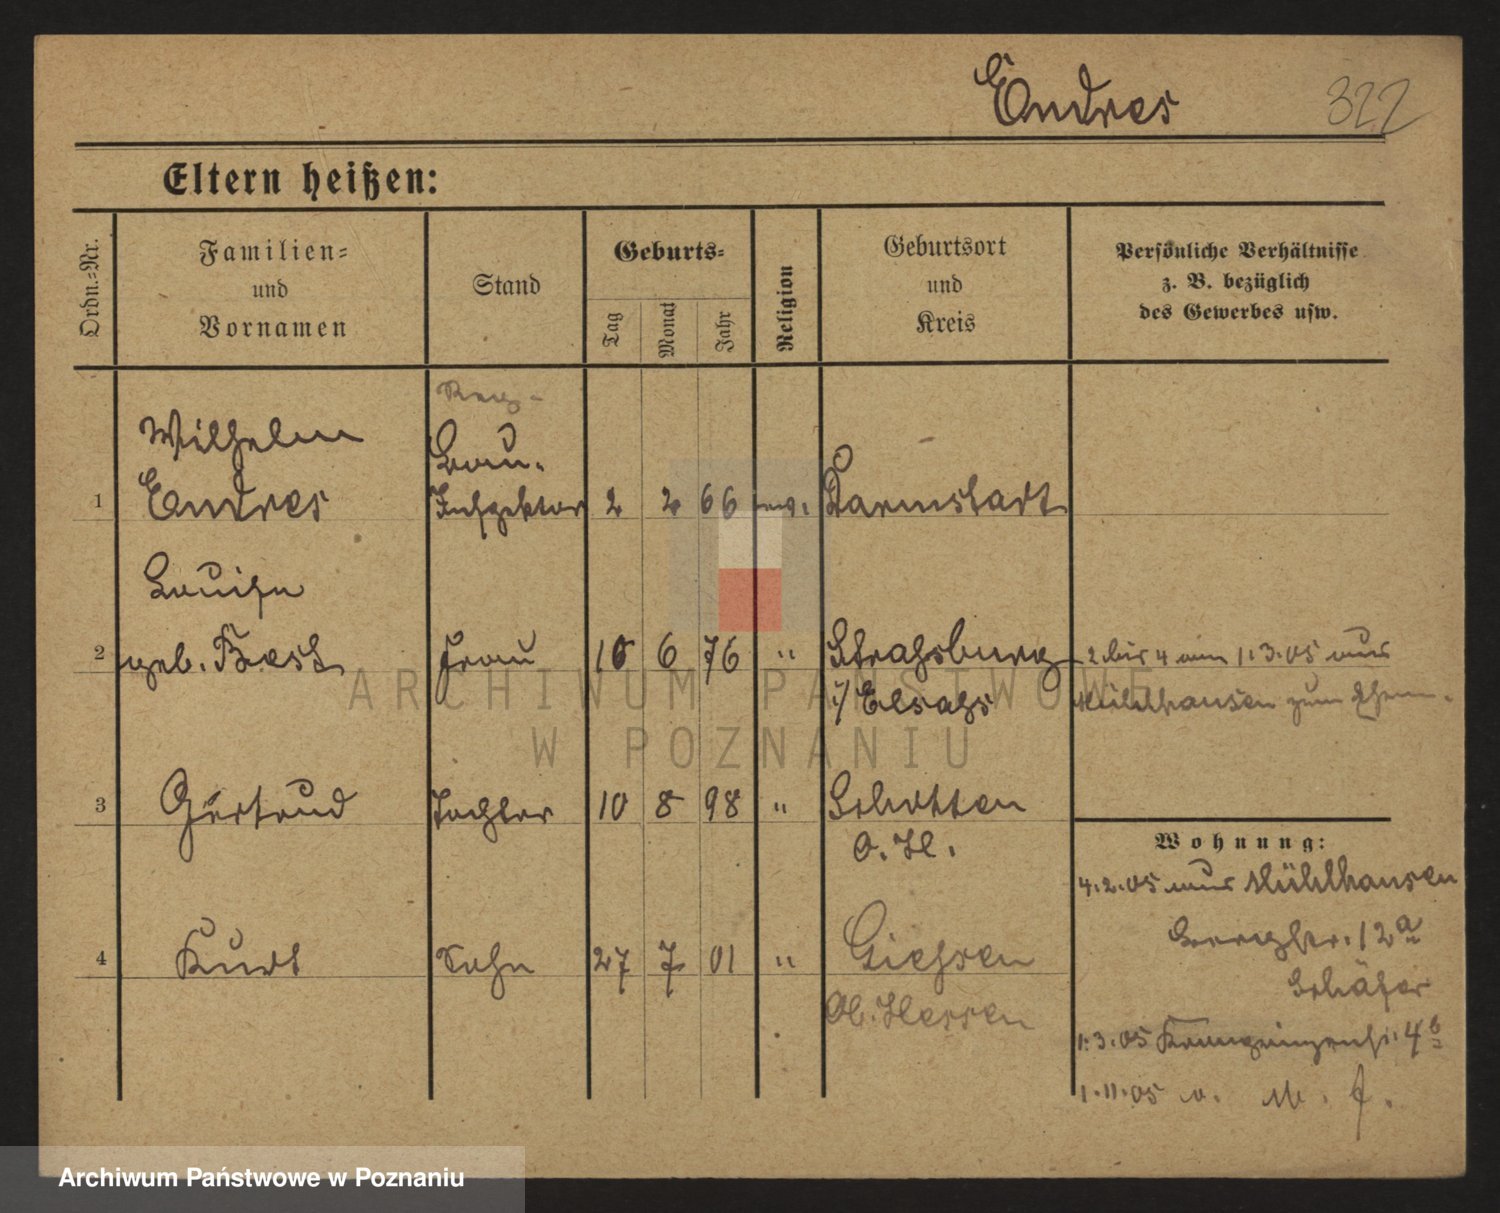 Endres
322
Eltern heißen:
Ordn.-Nr.
Familien-
und
Vornamen
Stand
Geburts-
Tag
Monat
Jahr
Religion
Geburtsort
und
Kreis
Persönliche Verhältnisse
z. B. bezüglich
des Gewerbes usw.
Reg-
Wilhelm
Bau-
1 Endres Inspektor 2 2 66 ev. Darmstadt
Louise
2 geb. Best Frau 16 6 76 " Strassburg 2 bis 4 am 1.3.05 aus
i/ Elsass Mühlhausen zum Ehem.
3 Gertrud Tochter 10 8 98 " Schotten
O. H.
Wohnung:
4.2.05 aus Mühlhausen
12a
Schäfer
4 Kurt Sohn 27 7 01 " Giessen
Ob. Hessen
1.3.05 Kronprinzenst. 4b
1.11.05 v. M. f.
ARCHIWUM PAŃSTWOWE
W POZNANIU
Archiwum Państwowe w Poznaniu